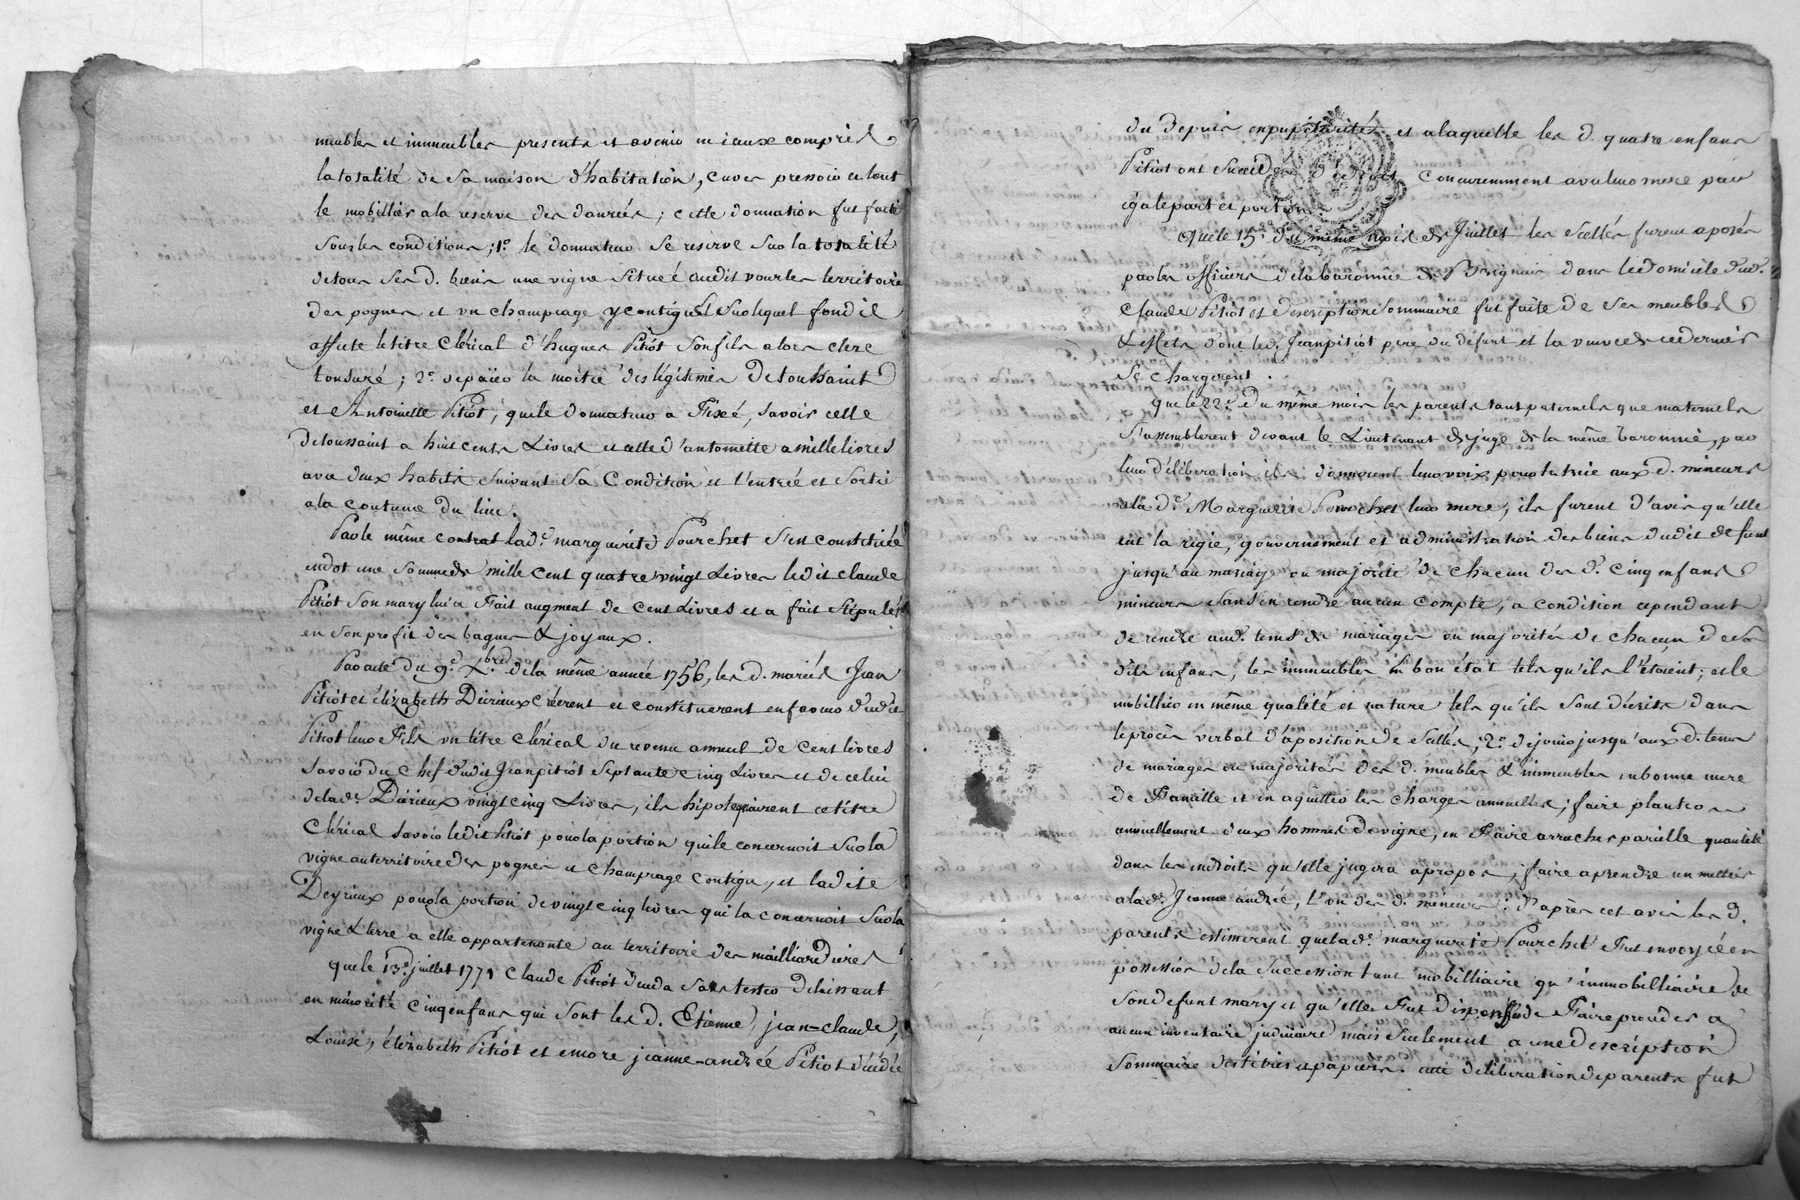 meubles et immeubles presents et avenir mieux compris
la totalité de sa maison d'habitation, cuves pressoir et tout
le mobillier a la reserve des danrées; cette donnation fut faite
sous les conditions; 1º le donnateur se reserve sur la totalité
de tous ses d. biens une vigne situeé audit vourles territoire
des pognes et un champtage y contigue sur lequel fond il
affecte le titre clérical d'hugues Pitiot son fils alors clerc
tonsuré; 2º de païer la moitié des légitimes de toussaint
et Antoinette Pitiot, que le donnateur a Fixé, savoir celle
de toussaint a huit cents Livres et celle d'antoinette a mille livres
avec deux habits suivant sa Condition et l'entrée et sortie
a la coutume du lieu.
Par le même contrat lad.e marguerite Pourchet s'est constituée
en dot une somme de mille cent quatre vingt Livres ledit claude
Pitiot son mary lui a Fait augment de cent Livres et a fait stipuler
en son profit des bagues & joyaux.
Par acte du 9e Xbre de la même année 1756, les d. mariés Jean
Pitiot et élizabeth Dérieux créerent et constituerent en faveur dudit
Pitiot leur Fils un titre clérical du revenu annuel de cent livres
savoir du chef dudit Jean pitiot septante cinq Livres et de celui
de lad.e Dérieux vingt cinq Livres, ils hipotequerent ce titre
clérical savoir ledit Pitiot pour la portion qui le concernoit sur la
vigne au territoire des pognes et champtage contigu, et ladite
Deyrieux pour la portion de vingt cinq livres qui la concernoit sur la
vigne & terre a elle appartenante au territoire des mailliardieres
que le 13e juillet 1771 claude Pitiot deceda sans tester delaissant
en minorité cinq enfans qui sont les d. Etienne, jean=claude,
Louise, élizabeth Pitiot et encore jeanne-andrée Pitiot décédée
du depuis en pupilarité et a laquelle les d. quatre enfans
Pitiot ont succedé de droit concuremment avec leur mere par
égale part et portion
Que le 15e du même mois de Juillet les scellés furent aposés
par les officiers de la baronnie de Brignais dans le domicile dud.
claude Pitiot et description sommaire fut faite de ses meubles
& effets dont led. Jean pitiot pere du défunt et la veuve de ce dernier
se chargerent.
que le 22e du même mois les parents tant paternels que maternels
s'assemblerent devant le Lieutenant de juge de la même baronnie, par
leur délibération ils donnerent leur voix pour tutrice aux d. mineurs
a la d.e Marguerite Pourchet leur mere, ils furent d'avis qu'elle
eut la regie, gouvernement et administration des biens dudit defunt
jusqu'au mariage ou majorité de chacun des d. cinq enfans
mineurs sans en rendre aucun compte, a condition cependant
de rendre aud. tems de mariages ou majorités de chacun desdits
dits enfans, les immeubles en bon état tels qu'ils l'étoient; et le
mobillier en même qualité et nature tels qu'ils sont décrits dans
le procès verbal d'aposition de scellés; 2º de jouir jusqu'aux d. tems
de mariages ou majorités des d. meubles & immeubles en bonne mere
de Famille et en aquitter les charges annuelles; faire planter
annuellement deux hommes de vigne, en Faire arracher pareille quantité
dans les endroits qu'elle jugera a propos; faire aprendre un mettier
a lad. Jeanne andrée, l'un des d. mineurs. D'après cet avis les d.
parents estimerent que lad.e marguerite Pourchet Fut envoyée en
possession de la succession tant mobilliaire qu'immobilliaire de
son defunt mary et qu'elle Fut dispensée de Faire proceder a
aucun inventaire judiciaire mais seulement a une description
sommaire des titres et papiers. cette deliberation de parents fut